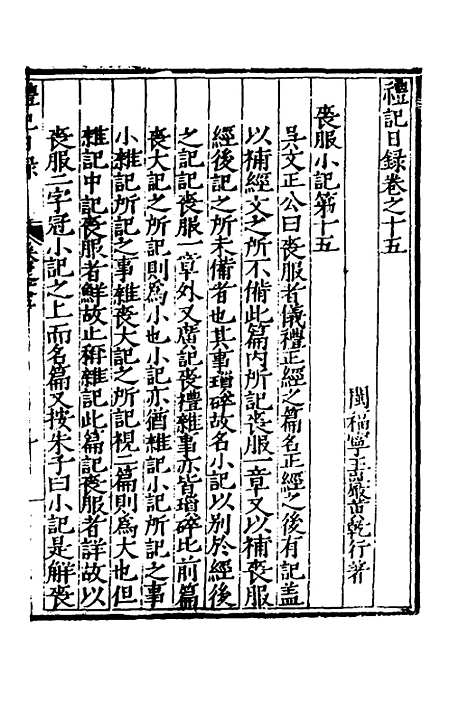 禮記日録卷之十五
閩福寧玉巖黄乾行著
喪服小記第十五
吳文正公曰喪服者儀禮正經之篇名正經之後有記蓋
以補經文之所不備此篇内所記喪服一章又以補喪服
經後記之所未備者也其事瑣碎故名小記以别於經後
之記記喪服一章外又廣記喪禮雜事亦皆瑣碎比前篇
喪大記之所記則為小也小記亦猶雜記小記所記之事
小雜記所記之事雜喪大記之所記視二篇則為大也但
雜記中記喪服者鮮故止稱雜記此篇記喪服者詳故以
喪服二字冠小記之上而名篇又按朱子曰小記是解喪
禮記日録